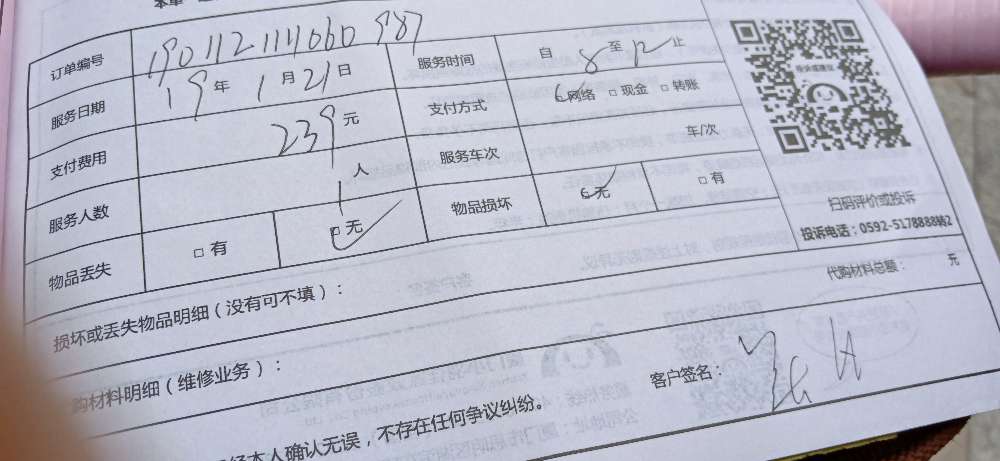 订单编号 190112114060987
服务日期 19年1月21日 服务时间 自8至12止
支付费用 239元 支付方式 网络 □现金 □转账
服务人数 1人 服务车次 车/次
物品丢失 □有 □无 物品损坏 无 □有
扫码评价或投诉
投诉电话：0592-5178888转2
损坏或丢失物品明细（没有可不填）：
代购材料总额： 元
购材料明细（维修业务）：
客户签名：
本人确认无误，不存在任何争议纠纷。